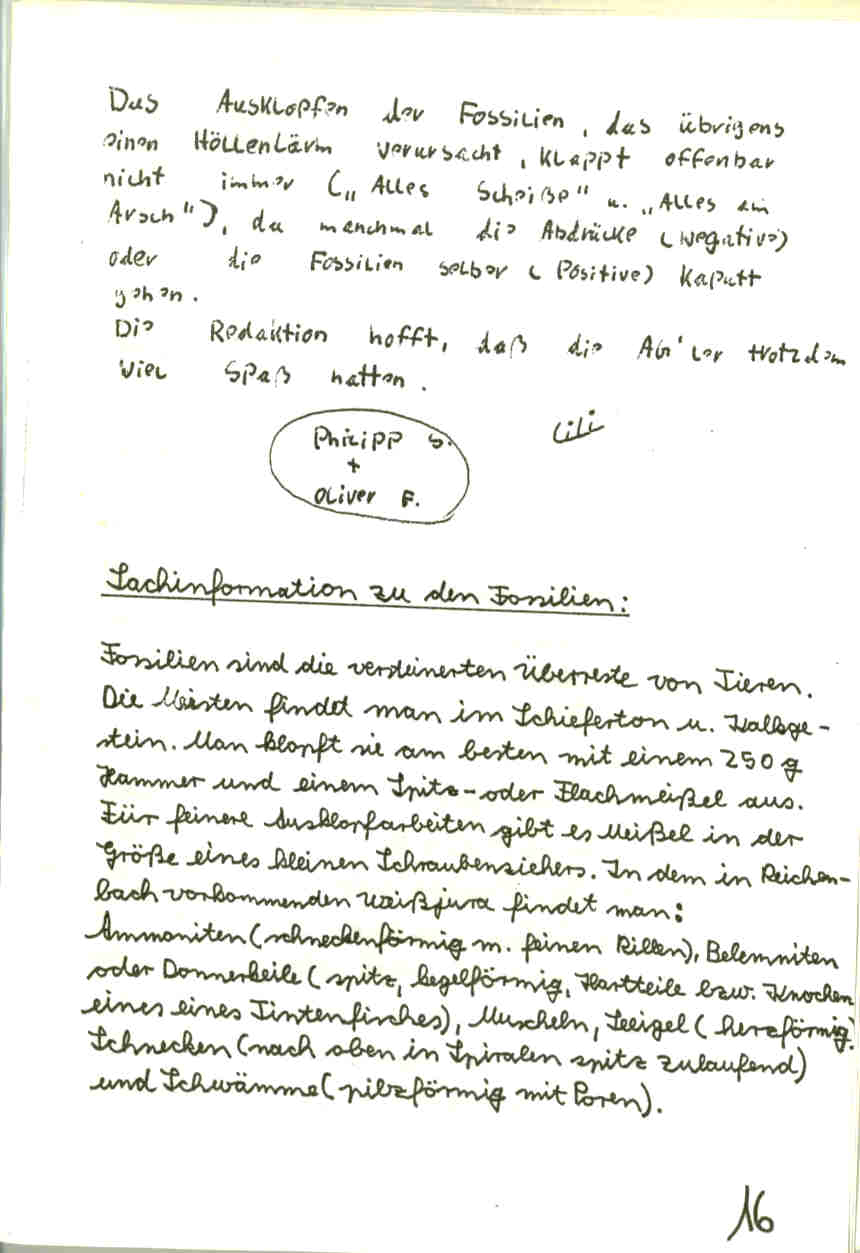 Das Ausklopfen der Fossilien, das übrigens
einen Höllenlärm verursacht, klappt offenbar
nicht immer („Alles Scheiße" u. „Alles am
Arsch"), da manchmal die Abdrücke (Negative)
oder die Fossilien selber (Positive) kaputt
gehen.
Die Redaktion hofft, daß die AG'ler trotzdem
viel Spaß hatten.
Philipp S. Lili
+
Oliver F.
Sachinformation zu den Fossilien:
Fossilien sind die versteinerten Überreste von Tieren.
Die Meisten findet man im Schieferton u. Kalksge-
stein. Man klopft sie am besten mit einem 250 g
Hammer und einem Spitz- oder Flachmeißel aus.
Für feinere Ausklopfarbeiten gibt es Meißel in der
Größe eines kleinen Schraubenziehers. In dem in Reichen-
bach vorkommenden Weißjura findet man:
Ammoniten (schneckenförmig m. feinen Rillen), Belemniten
oder Donnerkeile (spitz, kegelförmig, Hartteile bzw. Knochen
eines eines Tintenfisches), Muscheln, Seeigel (herzförmig),
Schnecken (nach oben in Spiralen spitz zulaufend)
und Schwämme (pilzförmig mit Poren).
16